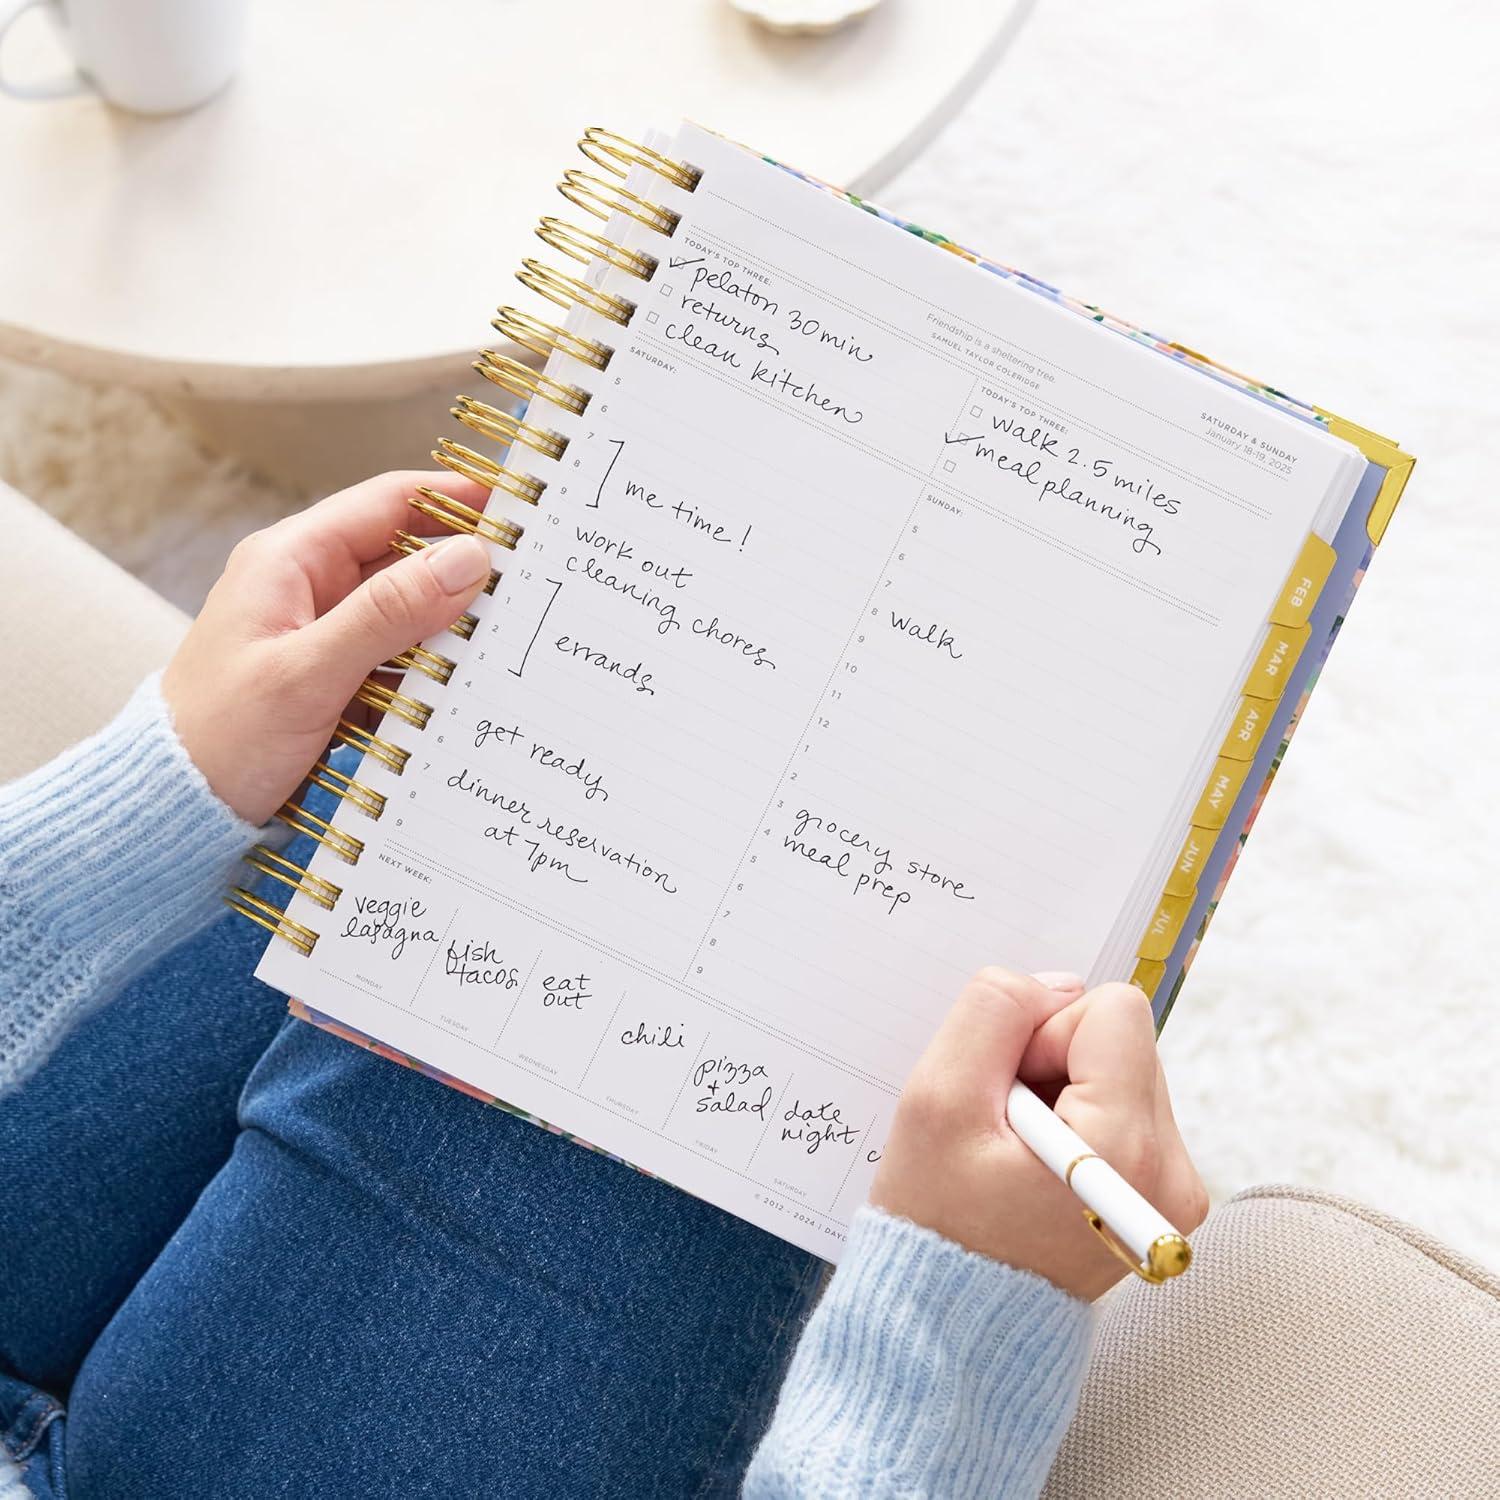 Friendship is a sheltering tree.
SAMUEL TAYLOR COLERIDGE
SATURDAY & SUNDAY
January 18-19, 2025
TODAY'S TOP THREE:
pelaton 30 min
returns
clean kitchen
SATURDAY:
5
6
7
8
me time!
9
10 work out
11 cleaning chores
12
1
2 errands
3
4
5 get ready
6
7 dinner reservation
8 at 7pm
9
TODAY'S TOP THREE:
walk 2.5 miles
meal planning
SUNDAY:
5
6
7
8 walk
9
10
11
12
1
2
3 grocery store
4 meal prep
5
6
7
8
9
NEXT WEEK:
veggie
lasagna
MONDAY
fish
tacos
TUESDAY
eat
out
WEDNESDAY
chili
THURSDAY
pizza
+
salad
FRIDAY
date
night
SATURDAY
© 2012 - 2024 |
FEB
MAR
APR
MAY
JUN
JUL